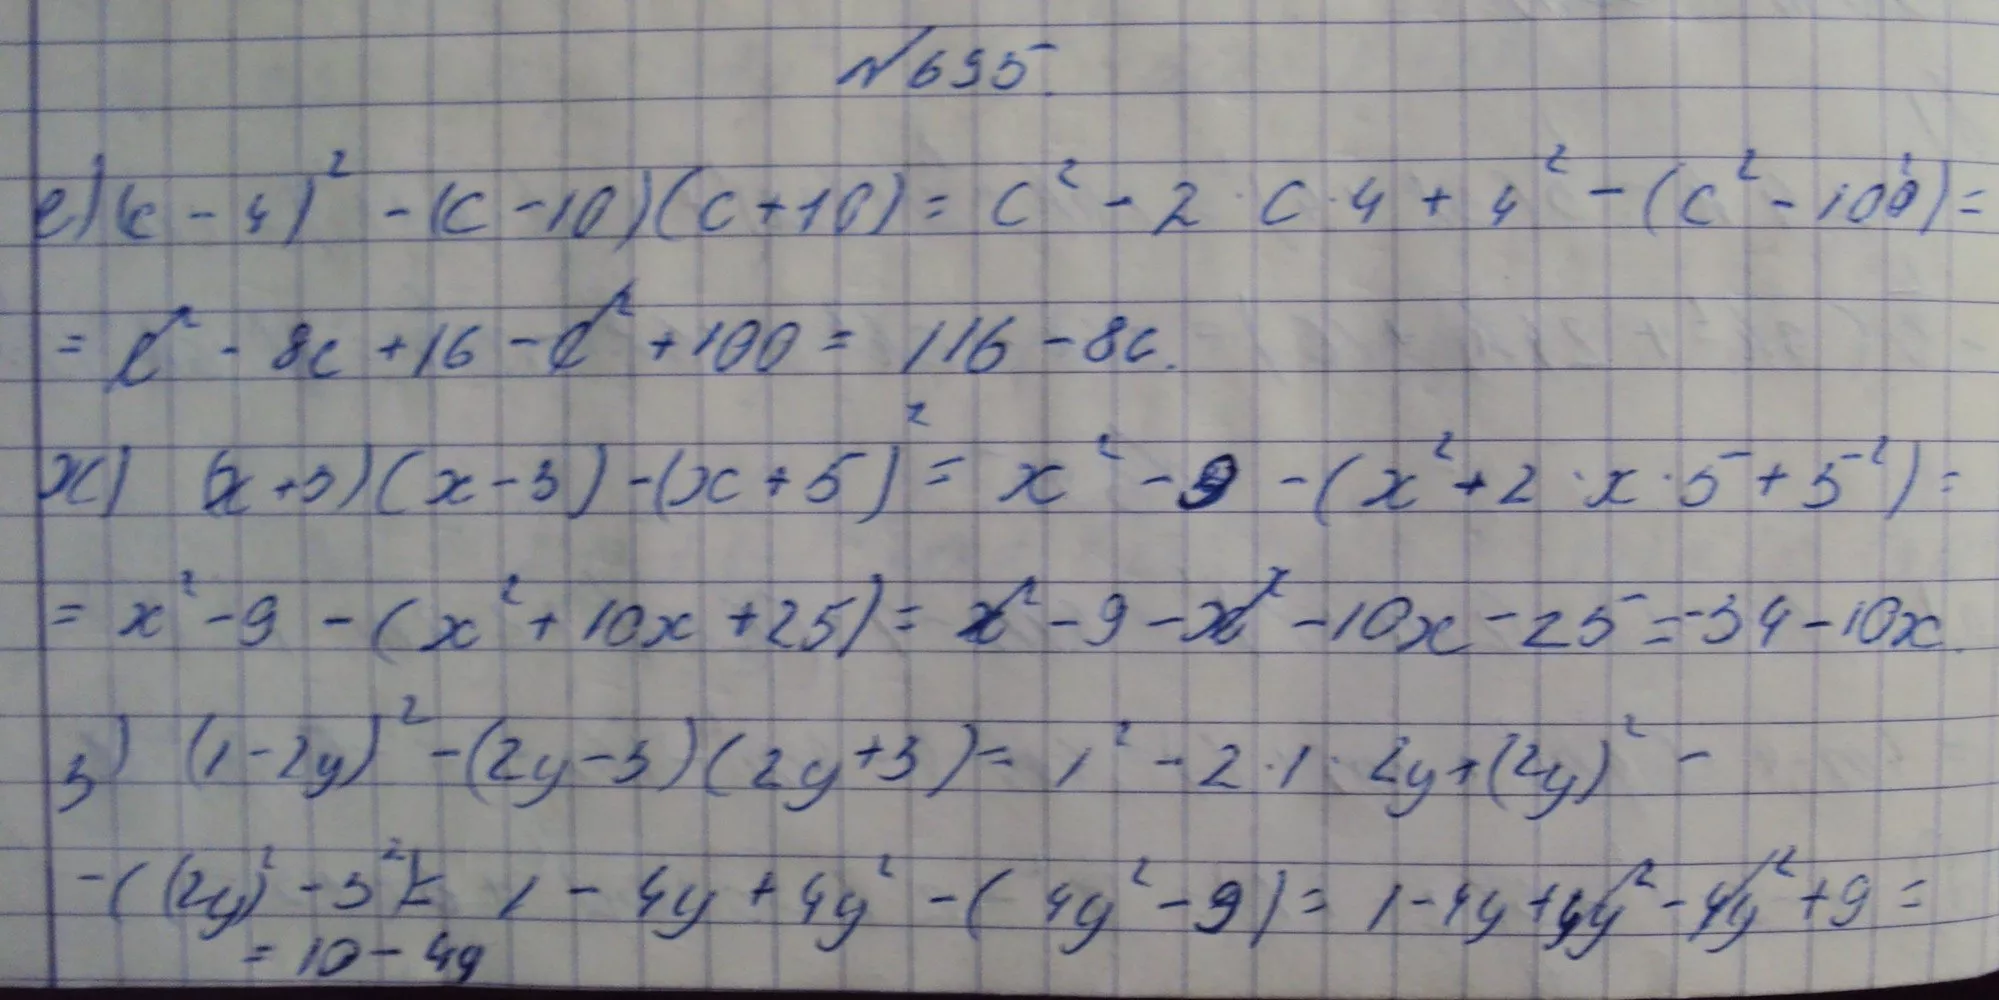 №695.
е) (c - 4)² - (c - 10)(c + 10) = c² - 2 · c · 4 + 4² - (c² - 100) =
= c² - 8c + 16 - c² + 100 = 116 - 8c.
ж) (x + 3)(x - 3) - (x + 5)² = x² - 9 - (x² + 2 · x · 5 + 5²) =
= x² - 9 - (x² + 10x + 25) = x² - 9 - x² - 10x - 25 = -34 - 10x.
з) (1 - 2y)² - (2y - 3)(2y + 3) = 1² - 2 · 1 · 2y + (2y)² -
- ((2y)² - 3²) = 1 - 4y + 4y² - (4y² - 9) = 1 - 4y + 4y² - 4y² + 9 =
= 10 - 4y